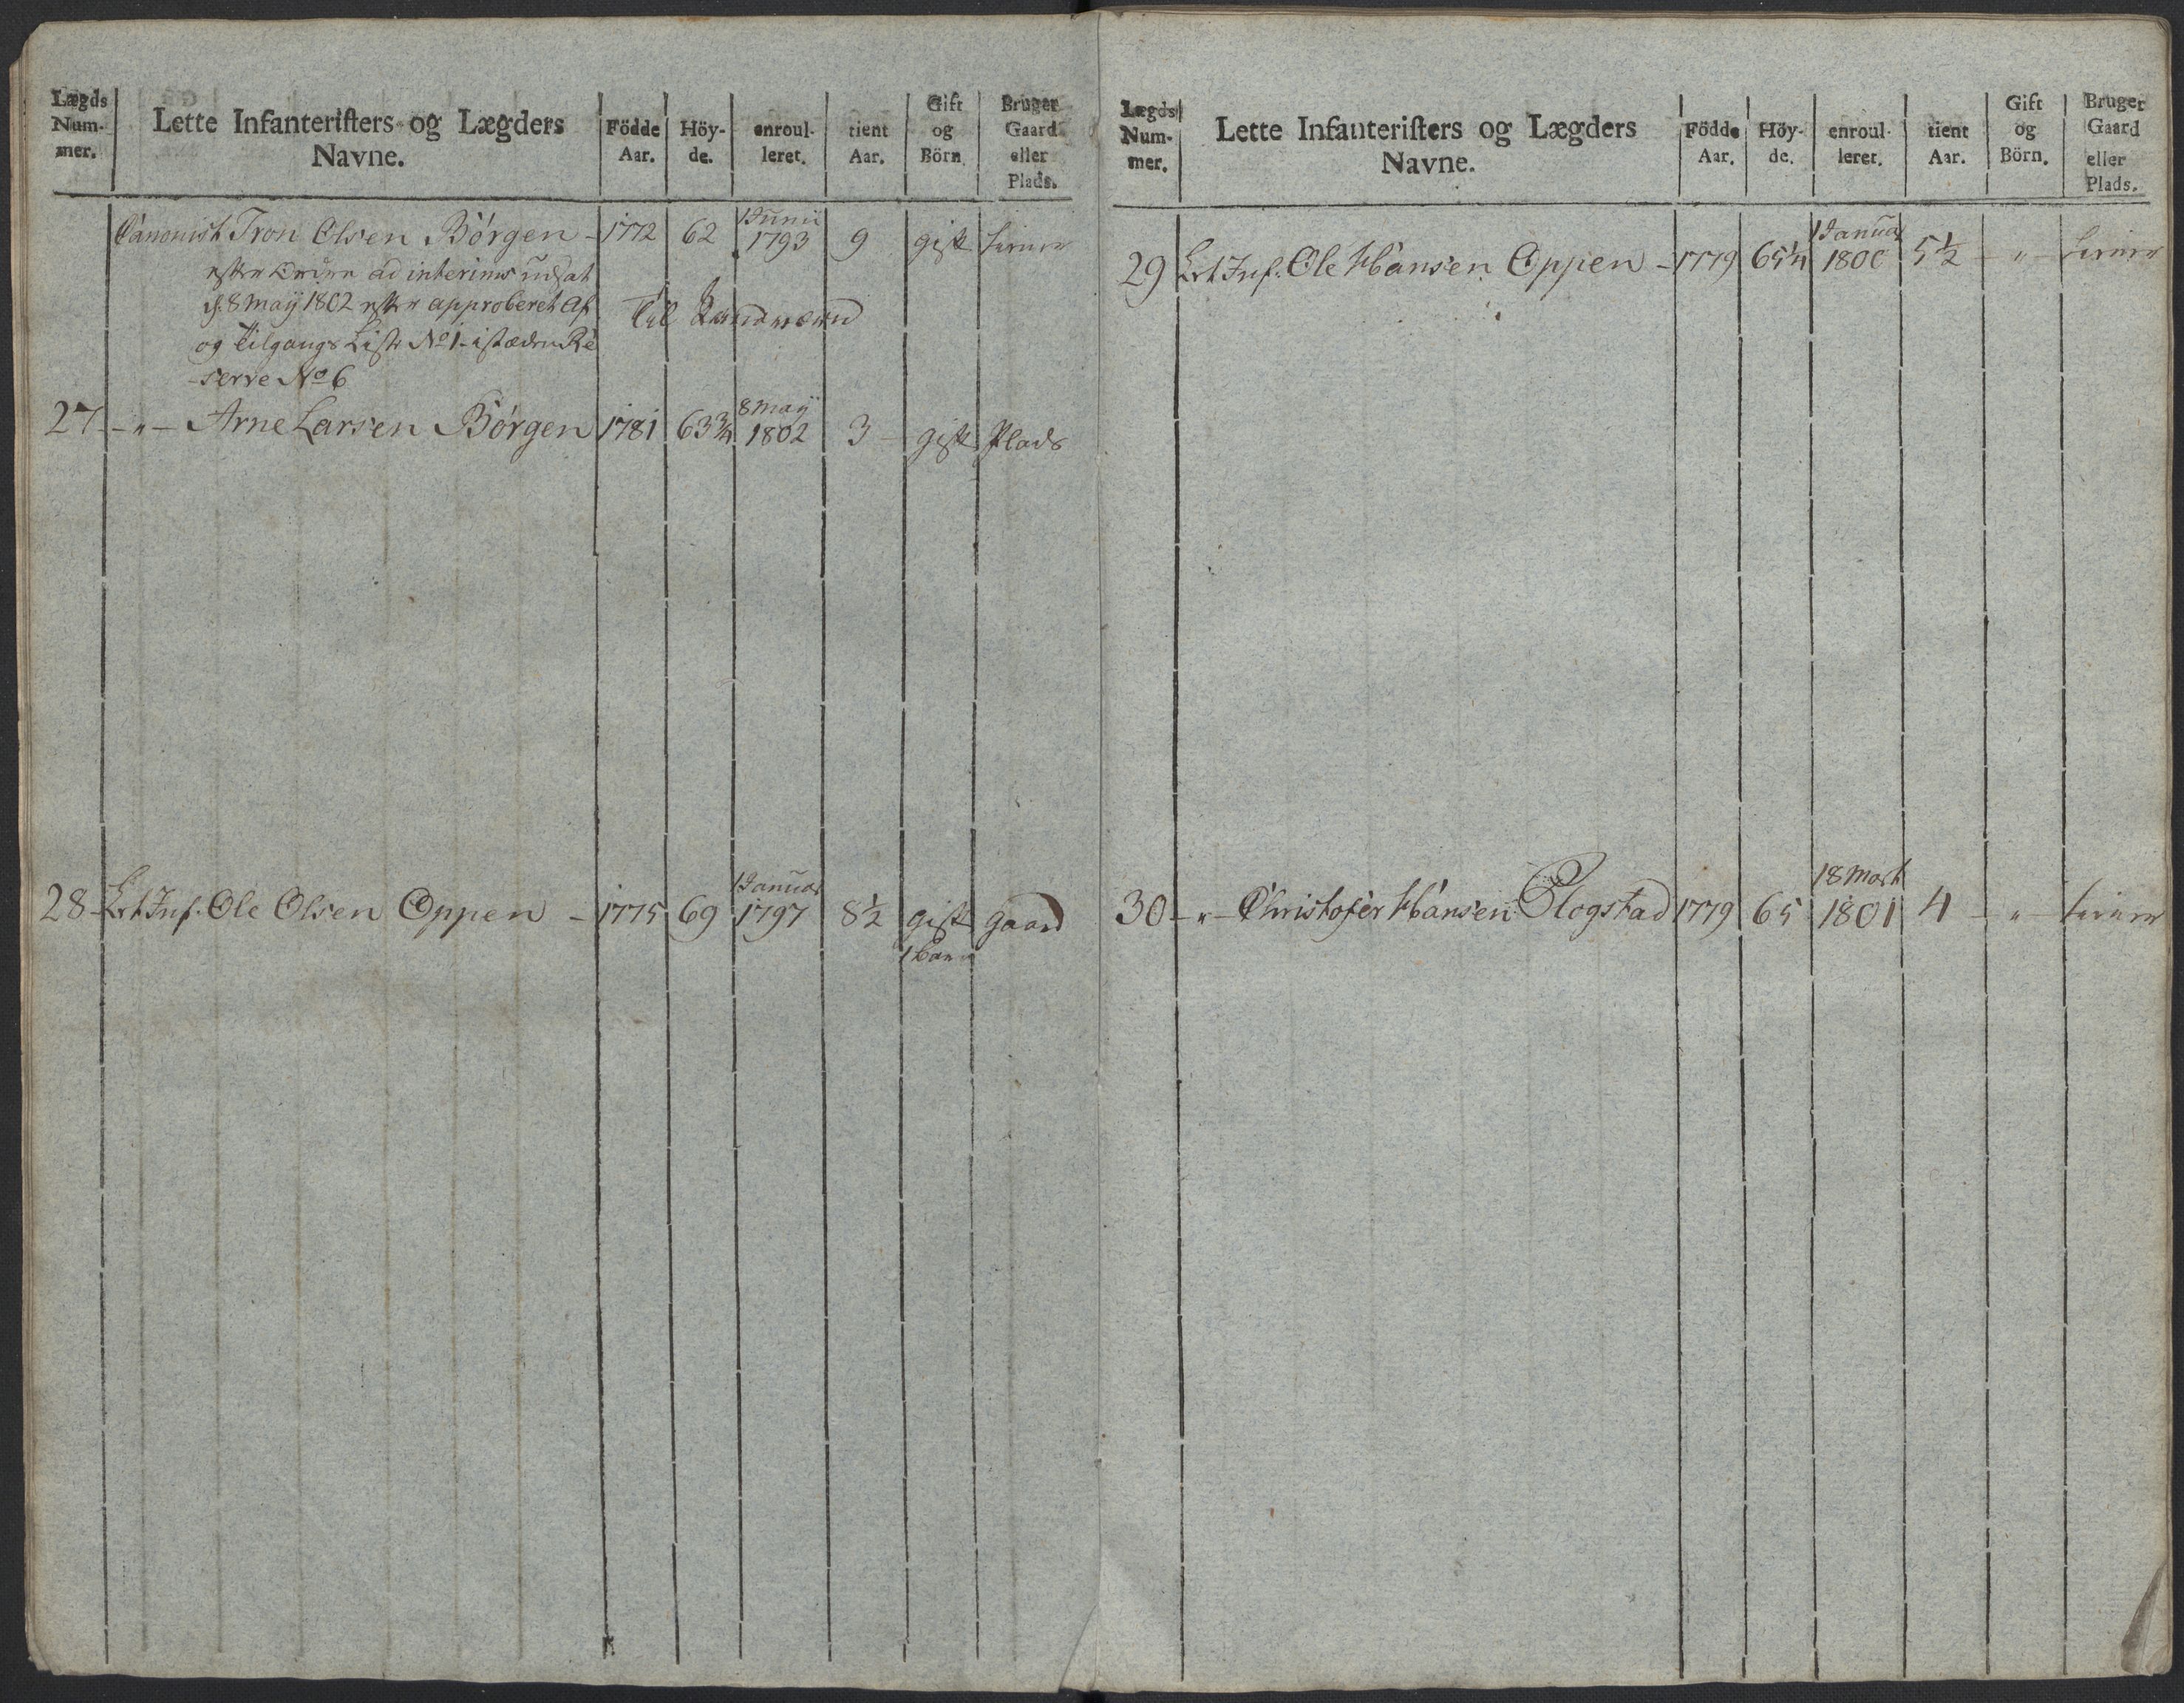 Lægds Num- mer. | Lette Infanteristers og Lægders Navne. | Födde Aar. | Höy- de. | enroul- leret. | tient Aar. | Gift og Börn. | Bruger Gaard eller Plads.
1 Junii
Tron Olsen Börgen - 1772 62 1793 9 gift
efter Ordre ad interims udsat
d. 8 Maij 1802 efter approberet Af
og Tilgangs Liste No 1 - istæden Re
-serve No 6
Til Landværn
8 Maij
27 - " - Arne Larsen Börgen 1781 63 3/4 1802 3 - gift Plads
1 Januar
28 - Let Inf. Ole Olsen Oppen - 1775 69 1797 8 1/2 gift gaard
1 barn
Lægds Num- mer. | Lette Infanteristers og Lægders Navne. | Födde Aar. | Höy- de. | enroul- leret. | tient Aar. | Gift og Börn. | Bruger Gaard eller Plads.
1 Januar
29 Let Inf. Ole Hansen Oppen - 1779 65 1/4 1800 5 1/2 - " -
18 Mart
30 - " - Christofer Hansen Slogstad 1779 65 1801 4 - " -